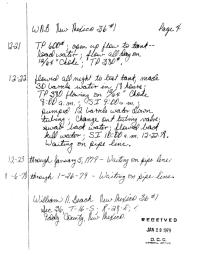 WRB New Mexico 36 #1 Page 4
12-21 TP 600#; open up flow to tank--
load water; flow all day on
16/64" Choke; TP 330#.
12-22 flowed all night to test tank, made
30 barrels water in 18 hours;
TP 330 flowing on 16/64" Choke
8:00 a.m.; SI 9:00 a.m.;
pumped 12 barrels water down
tubing; Change out tubing valve;
swab load water; flowed back
kill water; SI 10:00 a.m. 12-22-78.
Waiting on pipe line.
12-23 through January 5, 1979 - Waiting on pipe line
through 1-26-79 - Waiting on pipe line.
William N. Beach New Mexico 36 #1
Sec. 36, T-16-S; R-28-E;
Eddy County, New Mexico.
RECEIVED
JAN 29 1979
O.C.C.